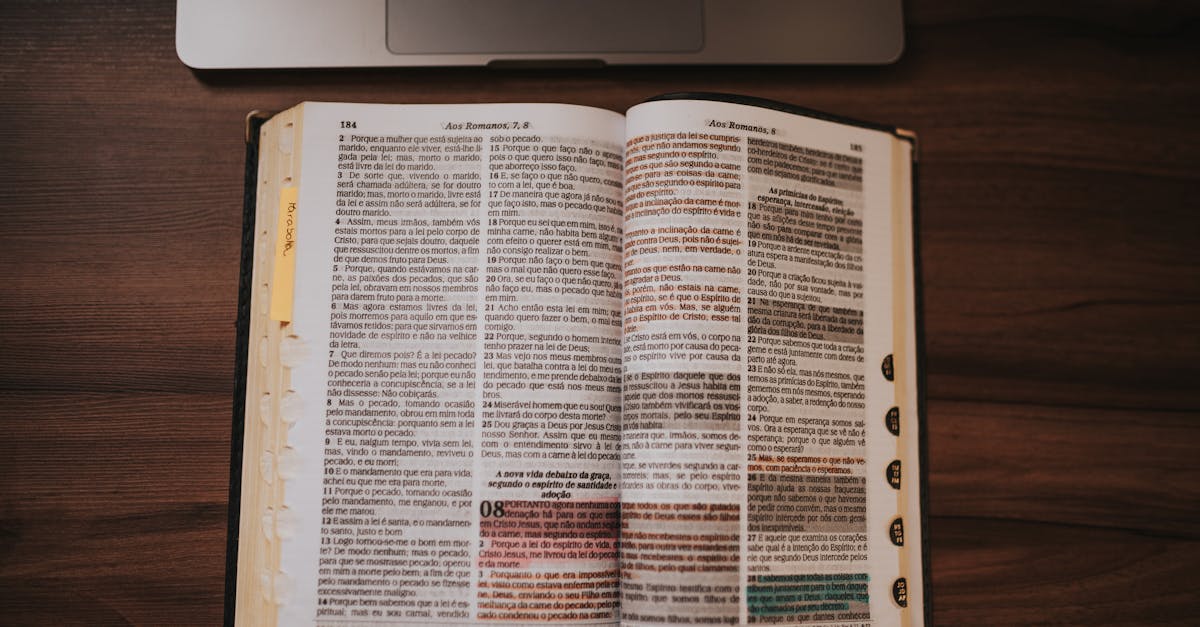 184
Aos Romanos, 7, 8
2 Porque a mulher que está sujeita ao
marido, enquanto ele viver, está-lhe li-
gada pela lei; mas, morto o marido,
está livre da lei do marido.
3 De sorte que, vivendo o marido,
será chamada adúltera, se for doutro
marido; mas, morto o marido, livre está
da lei e assim não será adúltera, se for
doutro marido.
4 Assim, meus irmãos, também vós
estais mortos para a lei pelo corpo de
Cristo, para que sejais doutro, daquele
que ressuscitou dentre os mortos, a fim
de que demos fruto para Deus.
5 Porque, quando estávamos na car-
ne, as paixões dos pecados, que são
pela lei, obravam em nossos membros
para darem fruto para a morte.
6 Mas agora estamos livres da lei,
pois morremos para aquilo em que es-
távamos retidos; para que sirvamos em
novidade de espírito e não na velhice
da letra.
7 Que diremos pois? É a lei pecado?
De modo nenhum; mas eu não conheci
o pecado senão pela lei; porque eu não
conheceria a concupiscência, se a lei
não dissesse: Não cobiçarás.
8 Mas o pecado, tomando ocasião
pelo mandamento, obrou em mim toda
a concupiscência: porquanto sem a lei
estava morto o pecado.
9 E eu, nalgum tempo, vivia sem lei,
mas, vindo o mandamento, reviveu o
pecado, e eu morri;
10 E o mandamento que era para vida,
achei eu que me era para morte.
11 Porque o pecado, tomando ocasião
pelo mandamento, me enganou, e por
ele me matou.
12 E assim a lei é santa, e o mandamen-
to santo, justo e bom
13 Logo tornou-se-me o bom em mor-
te? De modo nenhum; mas o pecado,
para que se mostrasse pecado, operou
em mim a morte pelo bem; a fim de que
pelo mandamento o pecado se fizesse
excessivamente maligno.
14 Porque bem sabemos que a lei é es-
piritual; mas eu sou carnal, vendido
sob o pecado.
15 Porque o que faço não o
pois o que quero isso não faço, mas
que aborreço isso faço.
16 E, se faço o que não quero,
to com a lei, que é boa.
17 De maneira que agora já não sou
que faço isto, mas o pecado que habita
em mim.
18 Porque eu sei que em mim, isto é,
minha carne, não habita bem algum:
com efeito o querer está em mim,
não consigo realizar o bem.
19 Porque não faço o bem que quero,
mas o mal que não quero esse faço.
20 Ora, se eu faço o que não quero, já
não faço eu, mas o pecado que habita
em mim.
21 Acho então esta lei em mim; que
quando quero fazer o bem, o mal está
comigo.
22 Porque, segundo o homem interior,
tenho prazer na lei de Deus;
23 Mas vejo nos meus membros outra
lei, que batalha contra a lei do meu
tendimento, e me prende debaixo da
do pecado que está nos meus mem-
bros.
24 Miserável homem que eu sou! Quem
me livrará do corpo desta morte?
25 Dou graças a Deus por Jesus Cristo
nosso Senhor. Assim que eu mesmo
com o entendimento sirvo à lei de
Deus, mas com a carne à lei do pecado.
A nova vida debaixo da graça,
segundo o espírito de santidade e
adoção
08 PORTANTO agora nenhuma con-
denação há para os que estão
em Cristo Jesus, que não andam segun-
do a carne, mas segundo o espírito.
2 Porque a lei do espírito de vida,
Cristo Jesus, me livrou da lei do pecado
e da morte.
3 Porquanto o que era impossível
lei, visto como estava enferma pela
ne, Deus, enviando o seu Filho em
melhança da carne do pecado, pelo
cado condenou o pecado na carne;
Aos Romanos, 8
185
que a justiça da lei se cumpris-
nós, que não andamos segundo
mas segundo o espírito.
que os que são segundo a carne
para as coisas da carne;
que são segundo o espírito para
do espírito.
a inclinação da carne é mor-
a inclinação do espírito é vida e
a inclinação da carne é
contra Deus, pois não é sujei-
de Deus, nem, em verdade, o
os que estão na carne não
agradar a Deus.
porém, não estais na carne,
espírito, se é que o Espírito de
habita em vós. Mas, se alguém
o Espírito de Cristo, esse tal
dele.
se Cristo está em vós, o corpo na
está morto por causa do peca-
o espírito vive por causa da
se o Espírito daquele que dos
ressuscitou a Jesus habita em
aquele que dos mortos ressusci-
Cristo também vivificará os vos-
corpos mortais, pelo seu Espírito
vós habita.
maneira que, irmãos, somos de-
não à carne para viver segun-
se viverdes segundo a car-
mas, se pelo espírito
as obras do corpo, vive-
todos os que são guiados
Espírito de Deus esses são filhos
não recebestes o espírito de
para outra vez estardes em
mas recebestes o espírito de
de filhos, pelo qual clamamos:
mesmo Espírito testifica com o
espírito que somos filhos de
se nós somos filhos, somos logo
herdeiros também, herdeiros de Deus
co-herdeiros de Cristo; se é certo que
com ele padecemos, para que também
com ele sejamos glorificados.
As primícias do Espírito;
esperança, intercessão, eleição
18 Porque para mim tenho por certo
que as aflições deste tempo presente
não são para comparar com a glória
que em nós há de ser revelada.
19 Porque a ardente expectação da cri-
atura espera a manifestação dos filhos
de Deus.
20 Porque a criação ficou sujeita à vai-
dade, não por sua vontade, mas por
causa do que a sujeitou,
21 Na esperança de que também a
mesma criatura será libertada da servi-
dão da corrupção, para a liberdade da
glória dos filhos de Deus.
22 Porque sabemos que toda a criação
geme e está juntamente com dores de
parto até agora.
23 E não só ela, mas nós mesmos, que
temos as primícias do Espírito, também
gememos em nós mesmos, esperando
a adoção, a saber, a redenção do nosso
corpo.
24 Porque em esperança somos sal-
vos. Ora a esperança que se vê não é
esperança; porque o que alguém vê
como o esperará?
25 Mas, se esperamos o que não ve-
mos, com paciência o esperamos.
26 E da mesma maneira também o
Espírito ajuda as nossas fraquezas;
porque não sabemos o que havemos
de pedir como convém, mas o mesmo
Espírito intercede por nós com gemi-
dos inexprimíveis.
27 E aquele que examina os corações
sabe qual é a intenção do Espírito; e é
ele que segundo Deus intercede pelos
santos.
28 E sabemos que todas as coisas con-
tribuem juntamente para o bem daque-
les que amam a Deus, daqueles que
são chamados por seu decreto.
29 Porque os que dantes conheceu
Parabola